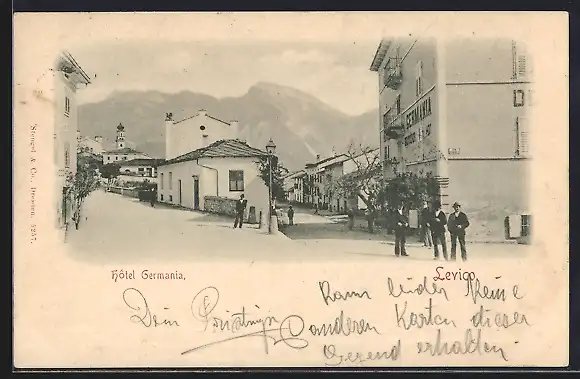 GERMANIA
D
Stengel & Co., Dresden 5257.
Hôtel Germania.
Levico.
Kann leider keine
Dein
anderen Karten dieser
Gegend erhalten.